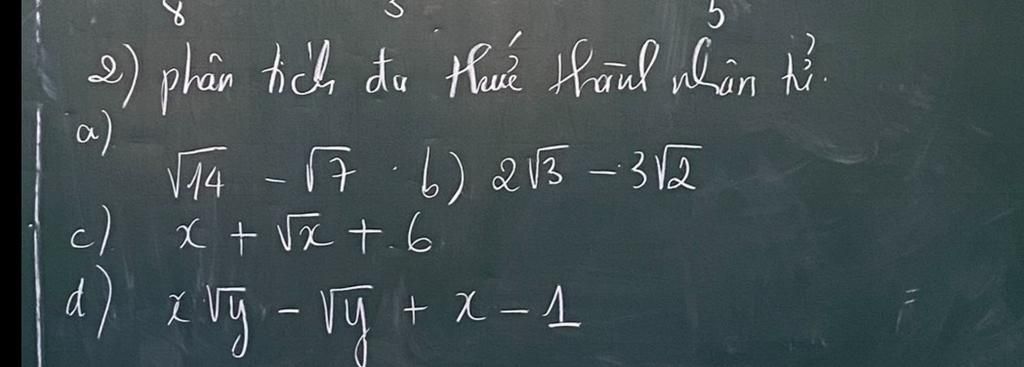 2) phân tích đa thức thành nhân tử.
a)
√14 - √7 b) 2√3 - 3√2
c) x + √x + 6
d) x√y - √y + x - 1
=